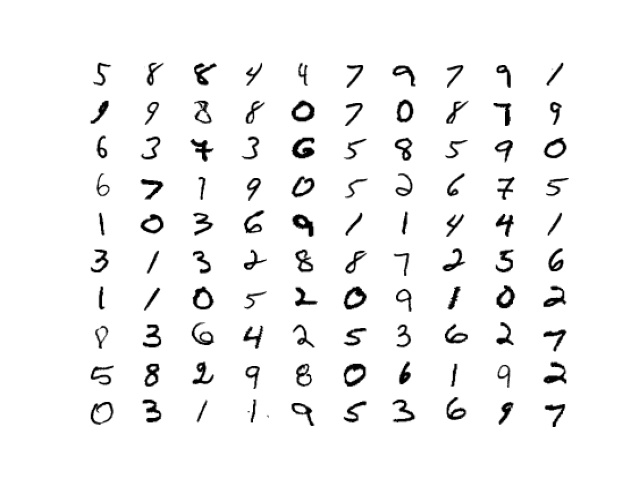 5 8 8 4 4 7 9 7 9 1
9 9 8 8 0 7 0 8 7 9
6 3 7 3 6 5 8 5 9 0
6 7 1 9 0 5 2 6 7 5
1 0 3 6 9 1 1 4 4 1
3 1 3 2 8 8 7 2 5 6
1 1 0 5 2 0 9 1 0 2
8 3 6 4 2 5 3 6 2 7
5 8 2 9 8 0 6 1 9 2
0 3 1 1 9 5 3 6 9 7